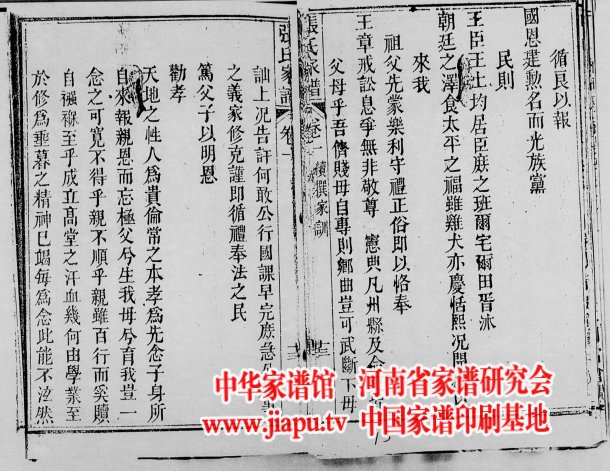 循良以報
國恩建勲名而光族黨
民則
王臣王土均居臣庶之班爾宅爾田胥沐
朝廷之澤食太平之福雖雞犬亦慶恬熙況閭
來我
祖父先蒙樂利守禮正俗即以恪奉
王章戒訟息爭無非敬尊 憲典凡州縣及
父母乎吾儕賤毋自專則鄉曲豈可武斷下毋
張氏家譜 卷一 續撰家訓
張氏家譜 卷一
訕上况告訐何敢公行國課早完庶急公
之義家修克謹即循禮奉法之民
篤父子以明恩
勸孝
天地之性人爲貴倫常之本孝爲先念子身所
自來報親恩而忘極父兮生我母兮育我豈一
念之可寬不得乎親不順乎親雖百行而奚贖
自襁褓至乎成立高堂之汗血幾何由學業至
於修爲垂暮之精神已竭每爲念此能不泫然
中华家谱馆 河南省家谱研究会
www.jiapu.tv 中国家谱印刷基地